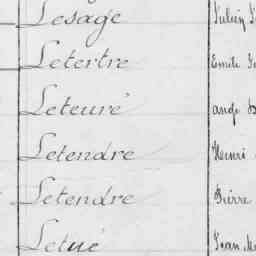 Lesage Julien
Letertre Emile
Leteuré ange
Letendre Henri
Letendre Pierre
Letué Jean